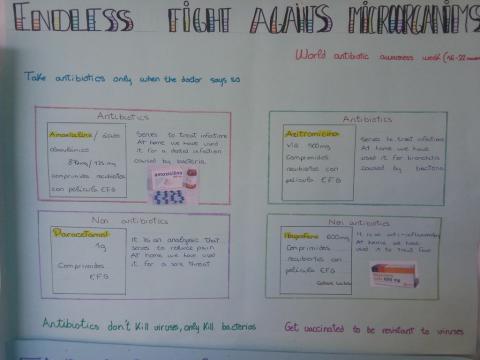 ENDLESS FIGHT AGAINTS MICROORGANIMS
World antibiotic awareness week (16-22
Take antibiotics only when the doctor says so
Antibiotics
Amoxicilina / ácido
clavulánico
875mg / 125 mg
comprimidos recubiertos
con película EFG
Serves to treat infections
At home we have used
it for a dental infection
caused by bacteria.
amoxicilina
Antibiotics
Azitromicina
vía 500mg
Comprimidos
recubiertos con
película EFG
Serves to treat infections
At home we have
used it for bronchitis
caused by bacteria
Non antibiotics
Paracetamol
1g
Comprimidos
EFG
It is an analgesic that
serves to reduce pain
At home we have used
it for a sore throat
Non antibiotics
Ibuprofeno 600mg
Comprimidos
recubiertos con
película EFG
It is an anti-inflammatory
At home we have
used it to treat
600 mg
Antibiotics don't kill viruses, only kill bacterias
Get vaccinated to be resistant to viruses